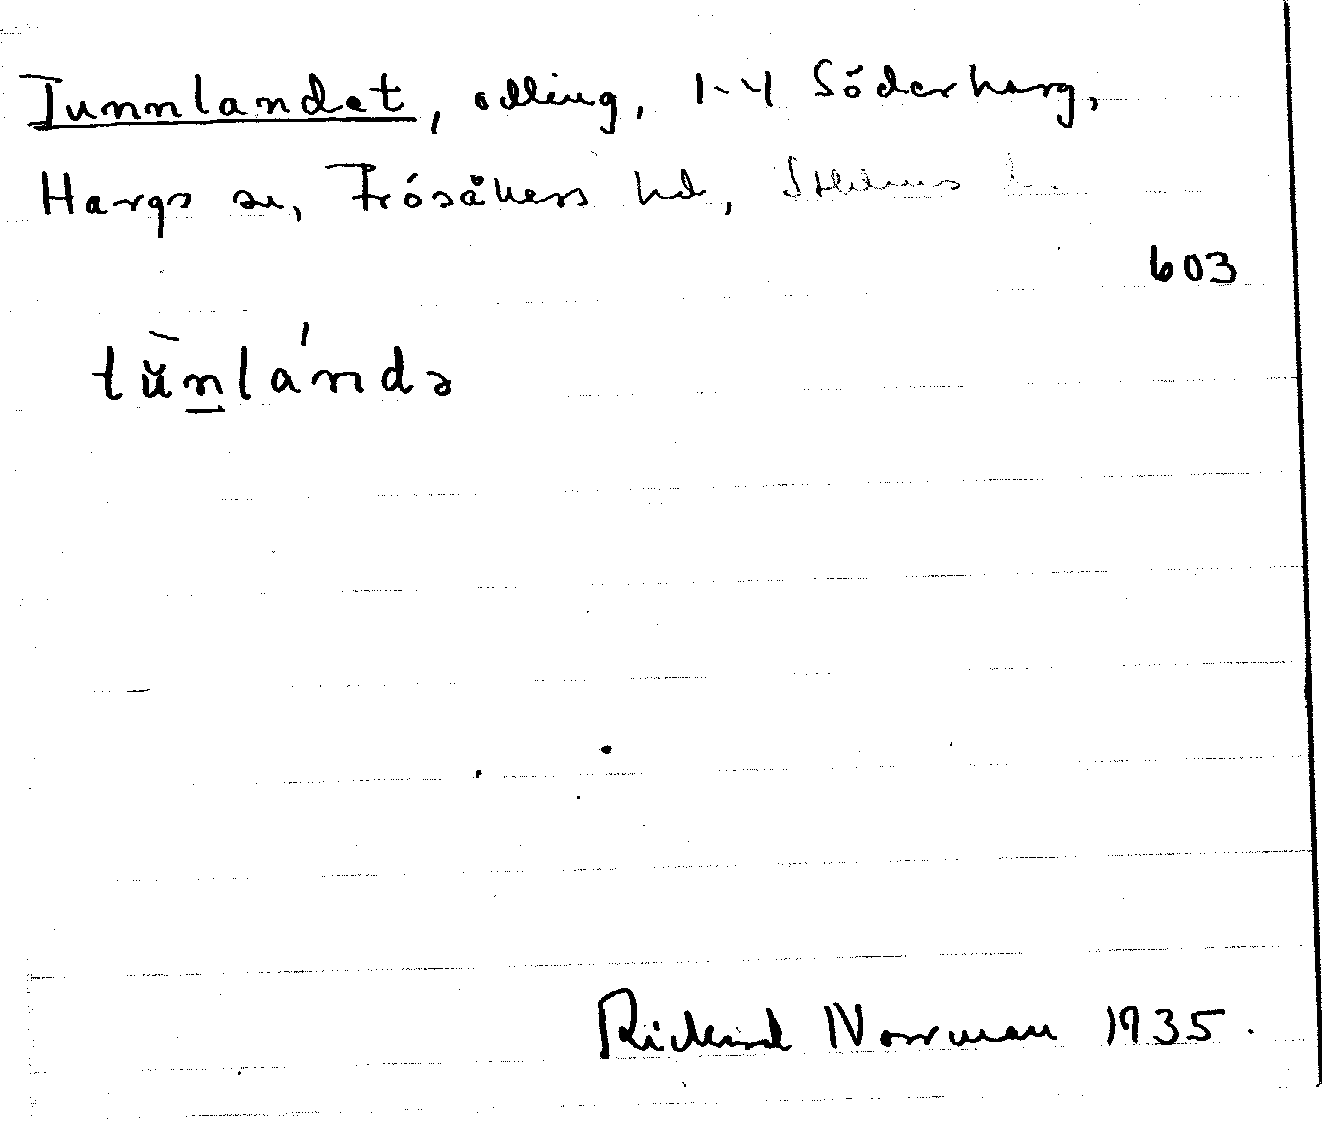 Tunnlandet, odling, 1-4 Söderharg,
Hargs sn, Frösåkers hd, Sthlms län
603
tŭ̀nlándə
Rickard Norrman 1935.